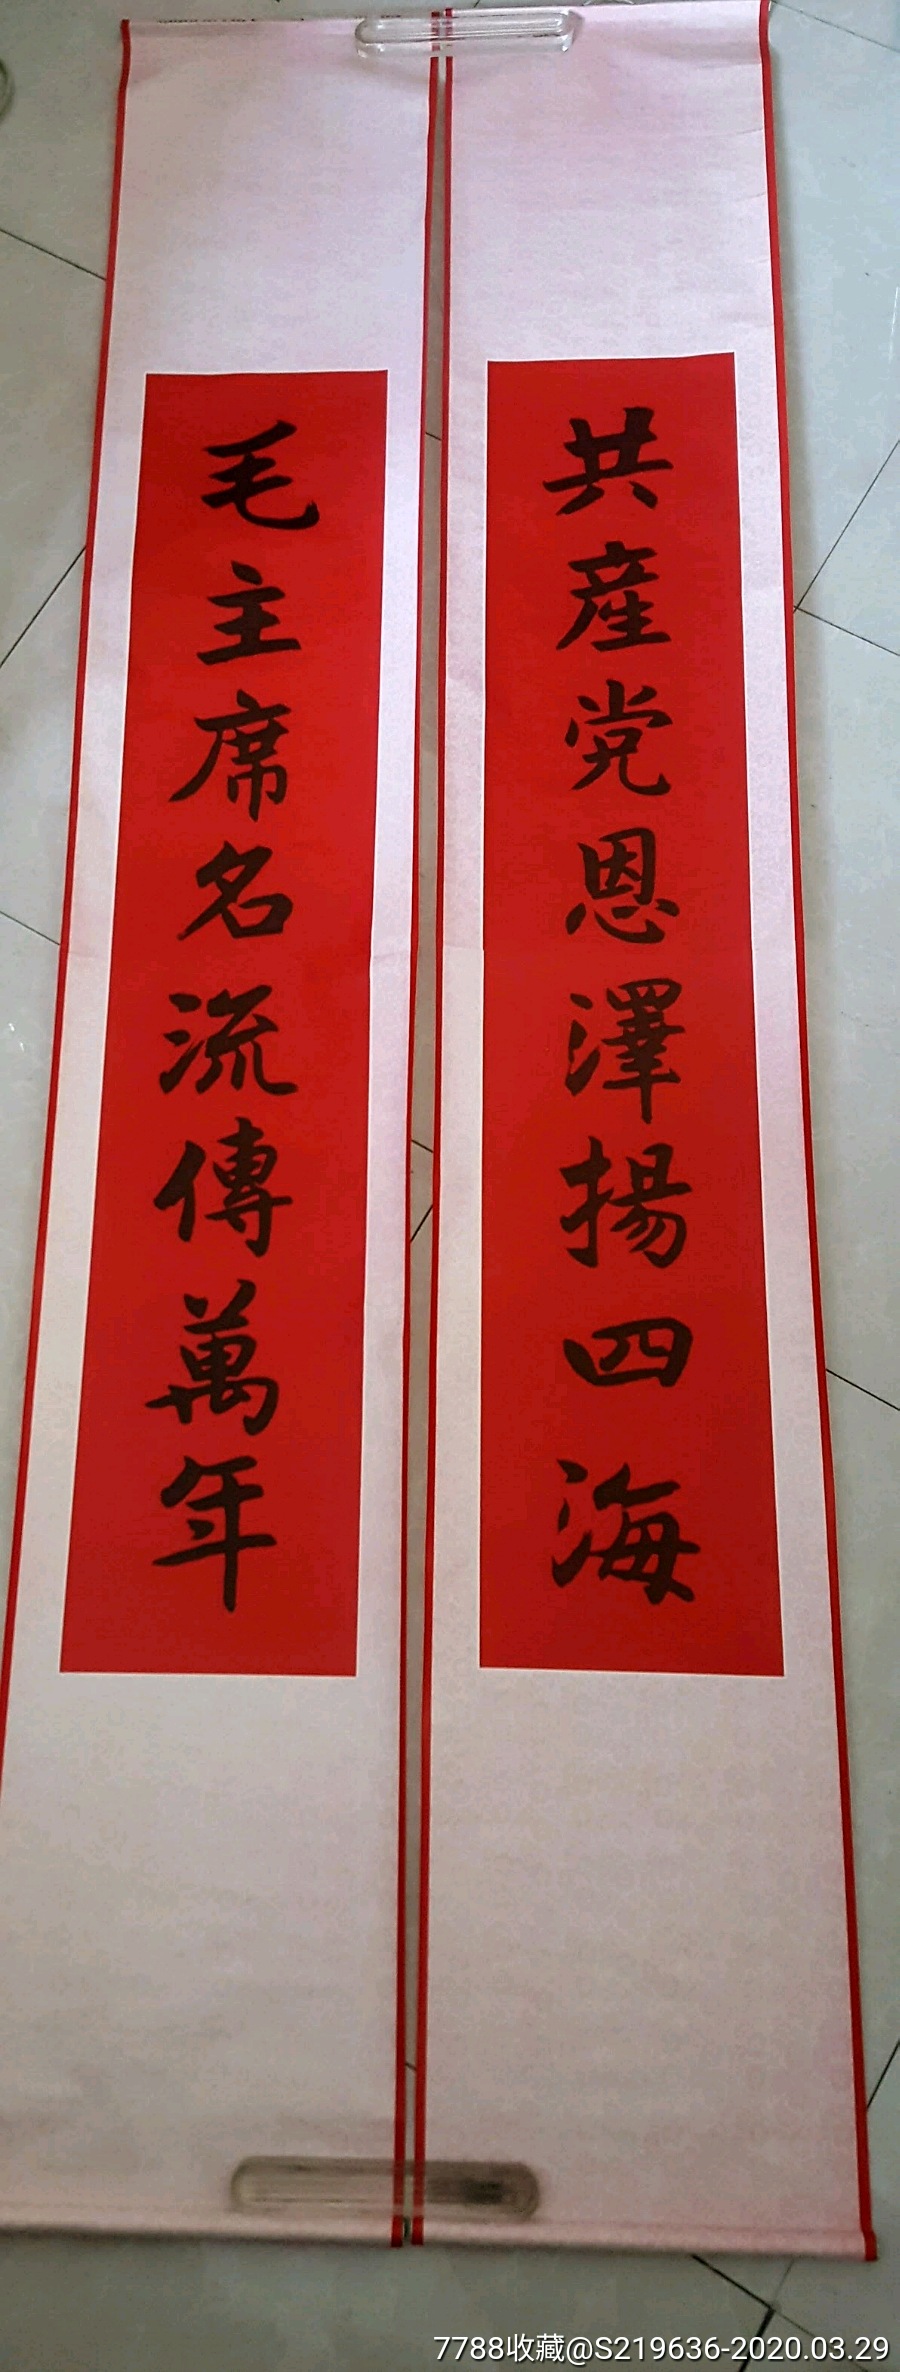 共産党恩澤揚四海
毛主席名流傳萬年
7788收藏@S219636-2020.03.29